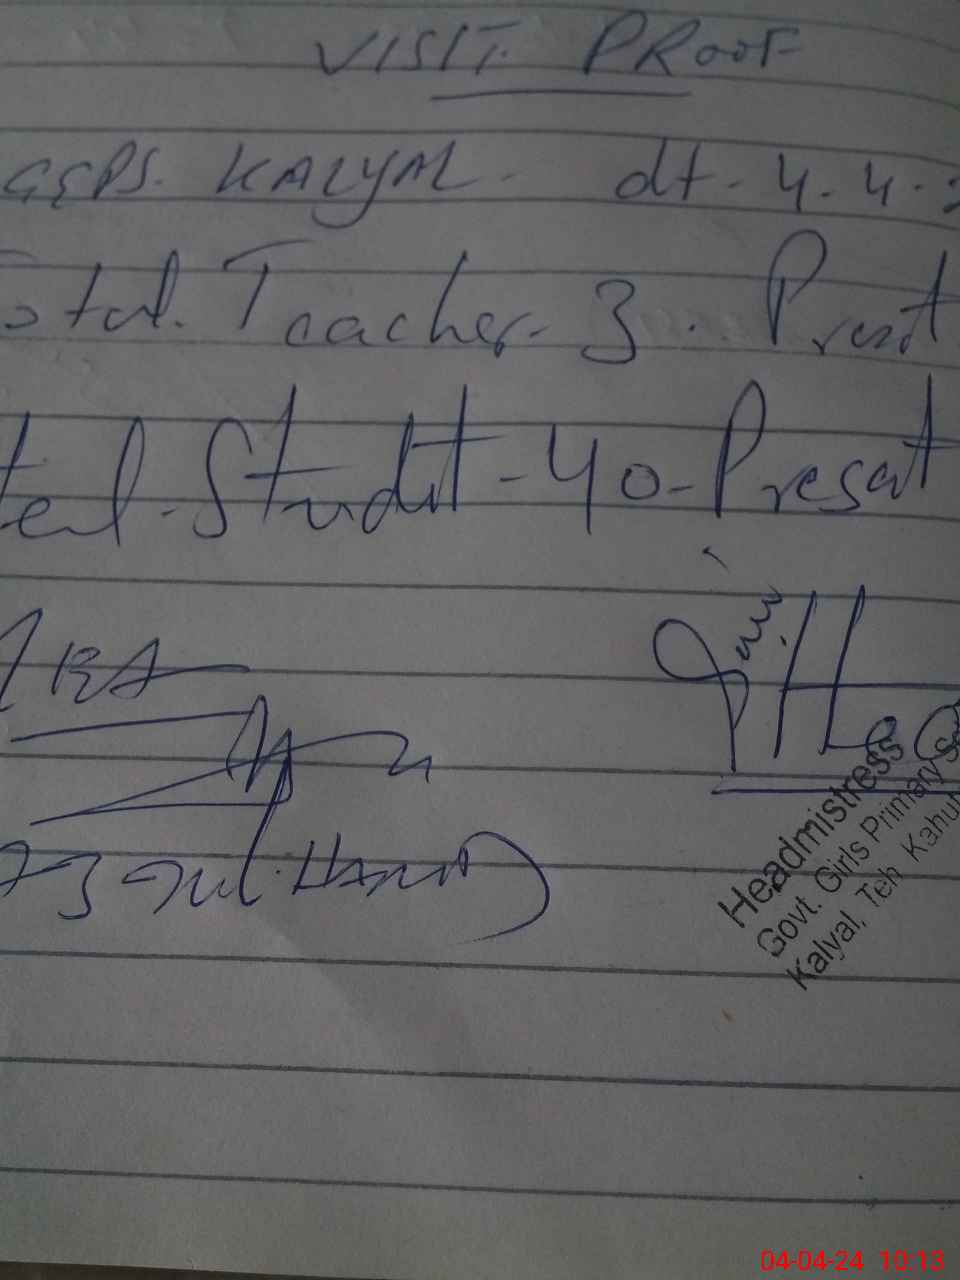 VISIT PROOF
GGPS. KALYAL. dt. 4.4.
Total. Teacher. 3. Presnt
Total. Studnt - 40 - Presant
Headmistress
Govt. Girls Primary Sc
Kalyal, Teh Kahu
04-04-24 10:13